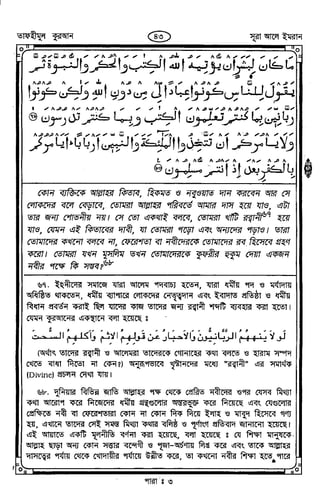 তাফহীমুল কুরআন
৪৩
সূরা আলে ইমরান
مَا كَانَ لِبَشَرٍ أَنْ يُؤْتِيَهُ اللهُ الْكِتٰبَ وَالْحُكْمَ وَالنُّبُوَّةَ ثُمَّ
يَقُوْلَ لِلنَّاسِ كُوْنُوْا عِبَادًا لِّيْ مِنْ دُوْنِ اللهِ وَلٰكِنْ كُوْنُوْا
رَبّٰنِيّٖنَ بِمَا كُنْتُمْ تُعَلِّمُوْنَ الْكِتٰبَ وَبِمَا كُنْتُمْ تَدْرُسُوْنَ
وَلَا يَأْمُرَكُمْ أَنْ تَتَّخِذُوا الْمَلٰٓئِكَةَ وَالنَّبِيّٖنَ أَرْبَابًا أَيَأْمُرُكُمْ
بِالْكُفْرِ بَعْدَ إِذْ أَنْتُمْ مُّسْلِمُوْنَ
কোন ব্যক্তিকে আল্লাহর কিতাব, হিকমত ও নবুওয়াত দান করবেন আর সে
লোকদের বলে বেড়াবে, তোমরা আল্লাহর পরিবর্তে আমার দাস হয়ে যাও, এটা
তার জন্য শোভনীয় নয়। সে তো একথাই বলবে, তোমরা খাঁটি রব্বানী৬৭ হয়ে
যাও, যেমন এই কিতাবের দাবী, যা তোমরা পড়ো এবং অন্যদের পড়াও। তারা
তোমাদেরকে কখনো বলবে না, ফেরেশতা বা নবীদেরকে তোমাদের রব হিসেবে গ্রহণ
করো। তোমরা যখন মুসলিম তখন তোমাদেরকে কুফরীর হুকুম দেয়া একজন
নবীর পক্ষে কি সম্ভব?৬৮
৬৭. ইহুদীদের সমাজে যারা আলেম পদবাচ্য হতেন, যারা ধর্মীয় পদ ও মর্যাদায়
অধিষ্ঠিত থাকতেন, ধর্মীয় ব্যাপারে লোকদের নেতৃত্বদান এবং ইবাদাত প্রতিষ্ঠা ও ধর্মীয়
বিধান প্রবর্তন করাই ছিল যাদের কাজ তাদের জন্য রব্বানী শব্দটি ব্যবহার করা হতো।
যেমন কুরআনের একস্থানে বলা হয়েছে :
لَوْلَا يَنْهٰهُمُ الرَّبّٰنِيُّوْنَ وَالْأَحْبَارُ عَنْ قَوْلِهِمُ الْإِثْمَ وَأَكْلِهِمُ السُّحْتَ
(অর্থাৎ তাদের রব্বানী ও আলেমরা তাদেরকে গোনাহের কথা বলতে ও হারাম সম্পদ
খেতে বাধা দিতো না কেন?) অনুরূপভাবে খৃষ্টানদের মধ্যে "রব্বানী" এর সমার্থক
(Divine) প্রচলন দেখা যায়।
৬৮. দুনিয়ার বিভিন্ন জাতি আল্লাহর পক্ষ থেকে প্রেরিত নবীদের ওপর যেসব মিথ্যা
কথা আরোপ করে নিজেদের ধর্মীয় গ্রন্থগুলোর অন্তরভুক্ত করে নিয়েছে এবং যেগুলোর
প্রেক্ষিতে নবী বা ফেরেশতারা কোন না কোন দিক দিয়ে ইলাহ ও মাবুদ হিসেবে গণ্য
হয়, এখানে তাদের সেই সমস্ত মিথ্যা কথার বলিষ্ঠ ও পূর্ণাংগ প্রতিবাদ জানানো হয়েছে।
এই আয়াতে একটি মূলনীতি বর্ণনা করা হয়েছে, বলা হয়েছে : যে শিক্ষা মানুষকে
আল্লাহ ছাড়া অন্য কোন সত্তার বন্দেগী ও পূজা-অর্চনায় লিপ্ত করে এবং তাকে আল্লাহর
দাসত্বের পর্যায় থেকে খোদায়ীর পর্যায়ে উন্নীত করে, তা কখনো নবীর শিক্ষা হতে পারে
পারা : ৩